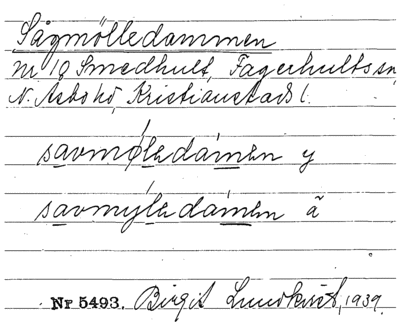 Sågmölledammen
nr 18 Smedhult, Fagerhults sn,
N. Åsbo hd, Kristianstads l.
savmøledamen y
savmyledamen ã
Nr 5493. Birgit Lundkvist, 1939.